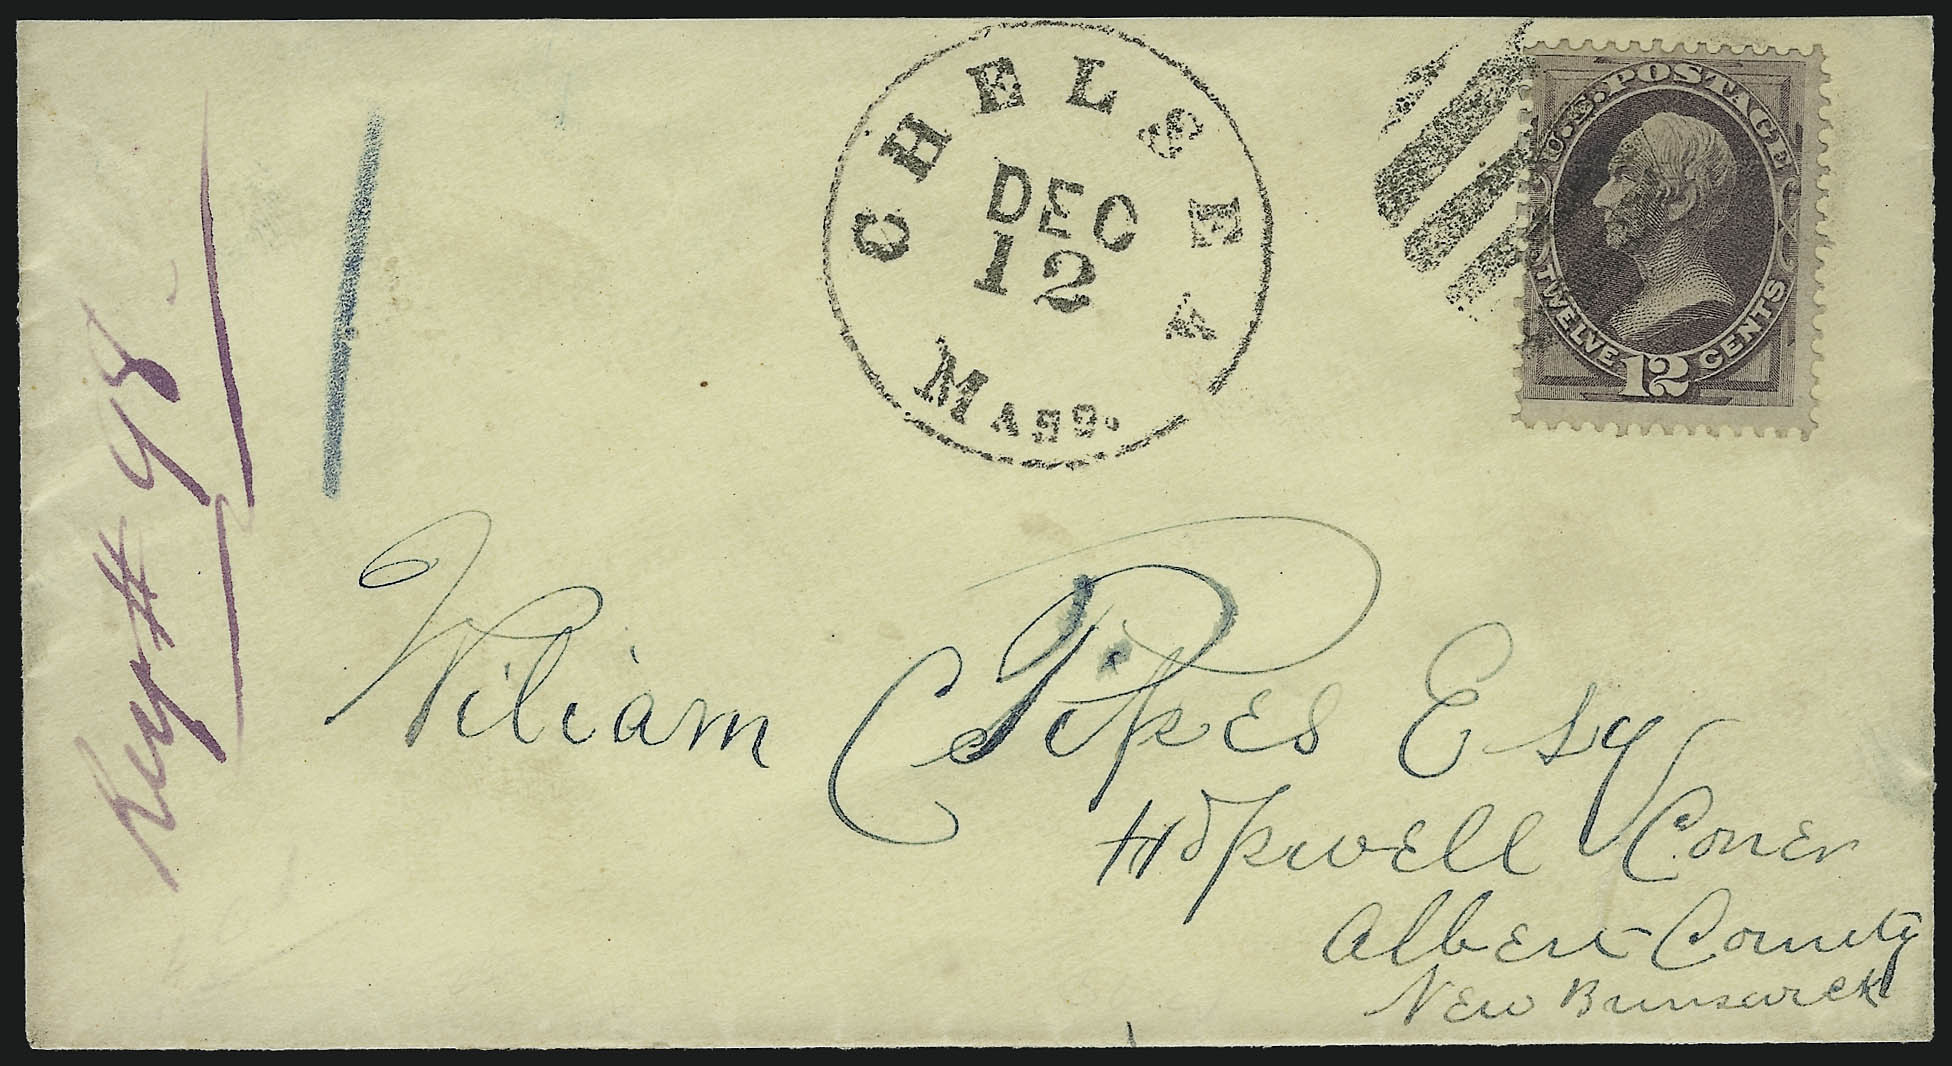 CHELSEA
DEC
12
MASS.
U.S. POSTAGE
TWELVE 12 CENTS
Wiliam C Pipes Esq
Hopwell Coner
Albert County
New Brunswick